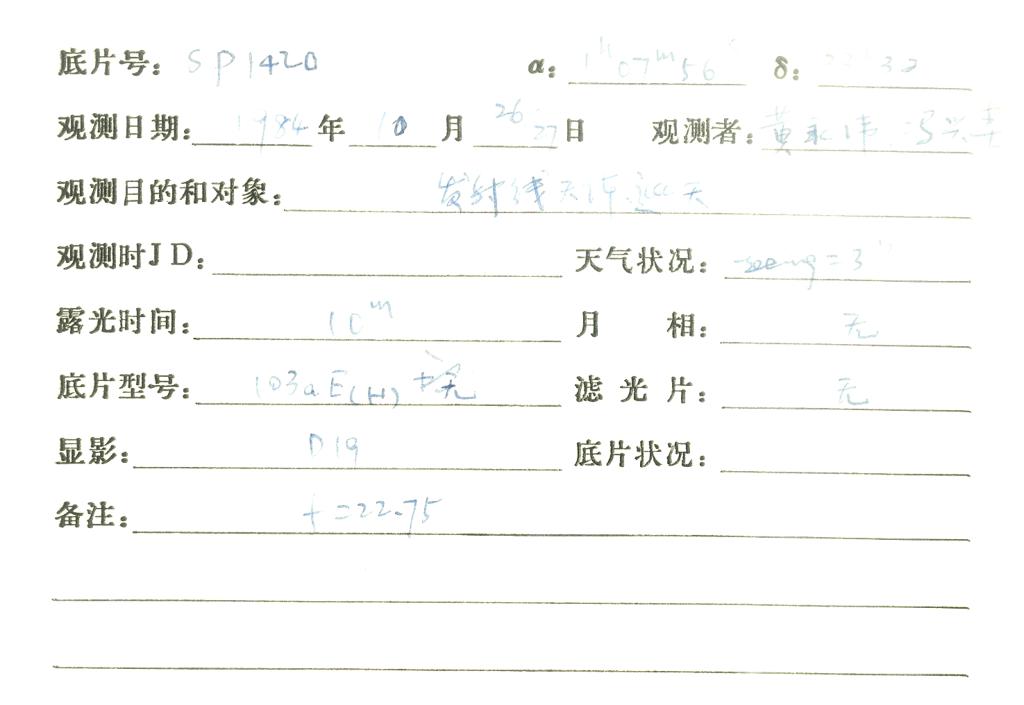 底片号: SP1420 α: 1h 07m 56 δ: 32
观测日期: 1984 年 10 月 26 27 日 观测者: 黄永伟
观测目的和对象: 发射线天体巡天
观测时JD: 天气状况: seeing = 3"
露光时间: 10m 月 相: 无
底片型号: 103aE(H) 滤 光 片: 无
显影: D19 底片状况:
备注: f=22.75